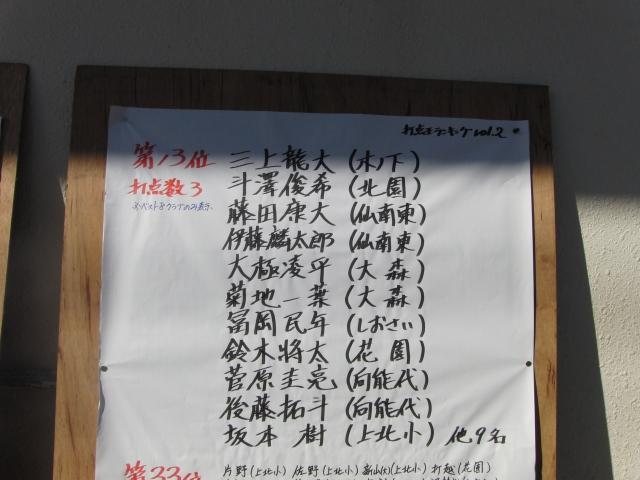 打点王ランキング vol.2
第13位 三上龍大 (木ノ下)
打点数3 斗澤俊希 (北園)
※ベスト8クラブのみ表示。 藤田康大 (仙南東)
伊藤麟太郎 (仙南東)
大極凌平 (大森)
菊地一葉 (大森)
冨岡民年 (しおさい)
鈴木将太 (花園)
菅原圭亮 (向能代)
後藤拓斗 (向能代)
坂本樹 (上北小) 他9名
第33位 片野(上北小) 佐野(上北小) 新山(大)(上北小) 打越(花園)